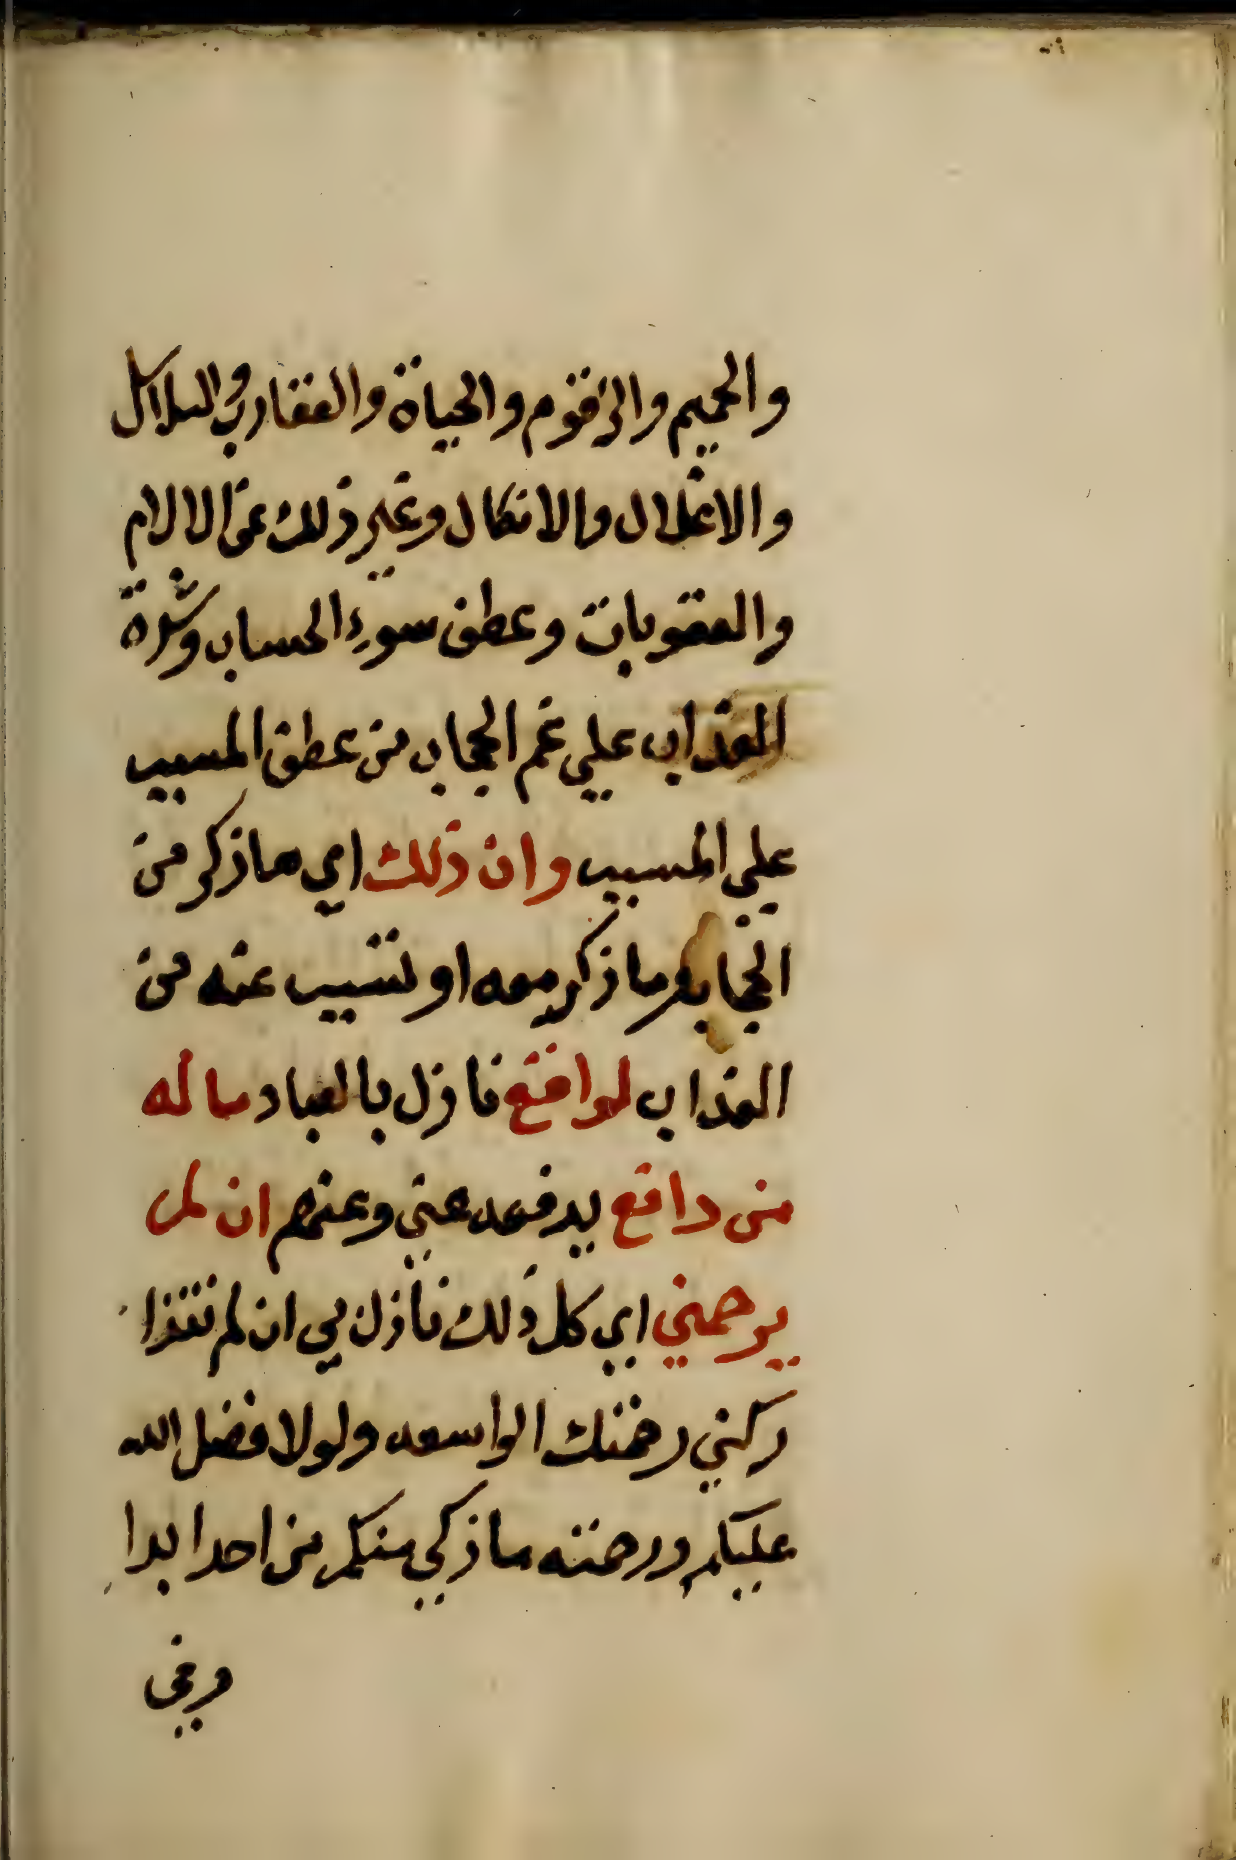 والحميم والزقوم والحياة والعقارب والسلاسل
والاغلال والانكال وغير ذلك من الالام
والعقوبات وعطف سوء الحساب وشدة
العذاب علي غم الحجاب من عطف المسبب
علي المسبب وان ذلك اي ما ذكر من
الحجاب وما ذكر معه او تسبب عنه من
العذاب لواقع نازل بالعباد ما له
من دافع يدفعه عني وعنهم ان لم
يرحمني اي كل ذلك نازل بي ان لم تتدا
ركني رحمتك الواسعه ولولا فضل الله
عليكم ورحمته ما زكي منكم من احد ابدا
وفي